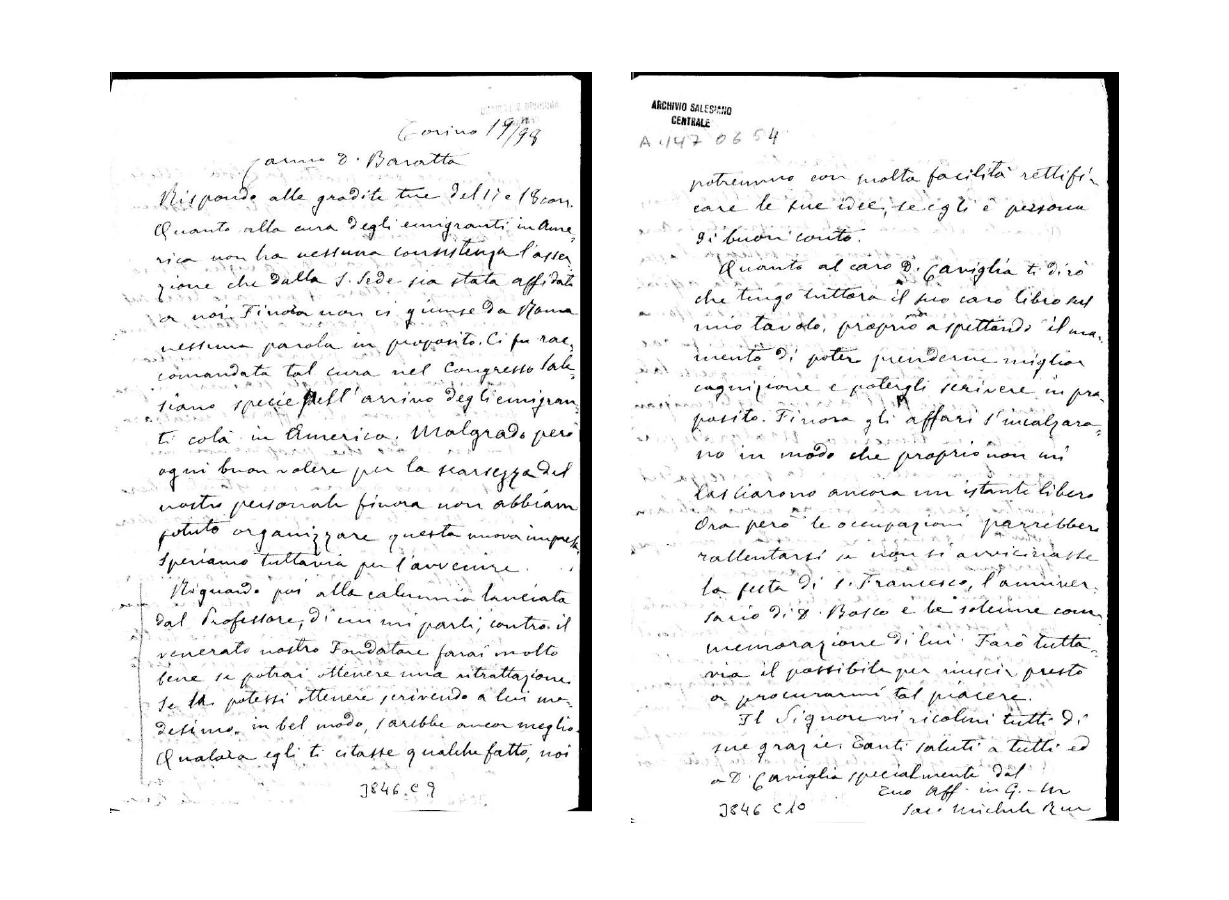 Torino 19/98
Carmo D. Baratta
Rispondo alle gradite tue del 11 e 18 corr.
Quanto alla cura degli emigranti in Ame-
rica non ha nessuna consistenza l'asser-
zione che dalla S. Sede sia stata affidata
a noi. Finora non ci giunse da Roma
nessuna parola in proposito. Ci fu rac-
comandata tal cura nel Congresso Sale-
siano specie nell'arrivo degli emigran-
ti colà in America. Malgrado però
ogni buon volere per la scarsezza del
nostro personale finora non abbiam
potuto organizzare questa nuova impresa
Speriamo tuttavia per l'avvenire.
Riguardo poi alla calunnia lanciata
dal Professore, di cui mi parli, contro il
venerato nostro Fondatore farai molto
bene se potrai ottenere una ritrattazione.
Se la potessi ottenere scrivendo a lui me-
desimo in bel modo, sarebbe ancor meglio.
Qualora egli ti citasse qualche fatto, noi
J846 C 9
ARCHIVIO SALESIANO
CENTRALE
A 147 06 54
potremmo con molta facilità rettifi-
care le sue idee, se egli è persona
di buon conto.
Quanto al caro D. Caviglia ti dirò
che tengo tuttora il suo caro libro sul
mio tavolo, proprio aspettando il mo-
mento di poter prenderne miglior
cognizione e potergli scrivere in pro-
posito. Finora gli affari s'incalzaro-
no in modo che proprio non mi
lasciarono ancora un istante libero
Ora però le occupazioni parrebbero
rallentarsi se non si avvicinasse
la festa di S. Francesco, l'anniver-
sario di D. Bosco e la solenne com-
memorazione di lui. Farò tutta-
via il possibile per riuscir presto
a procurarmi tal piacere.
Il Signore vi ricolmi tutti di
sue grazie. Tanti saluti a tutti ed
a D. Caviglia specialmente dal
Tuo Aff. in G. e M.
Sac. Michele Rua
J846 C 10